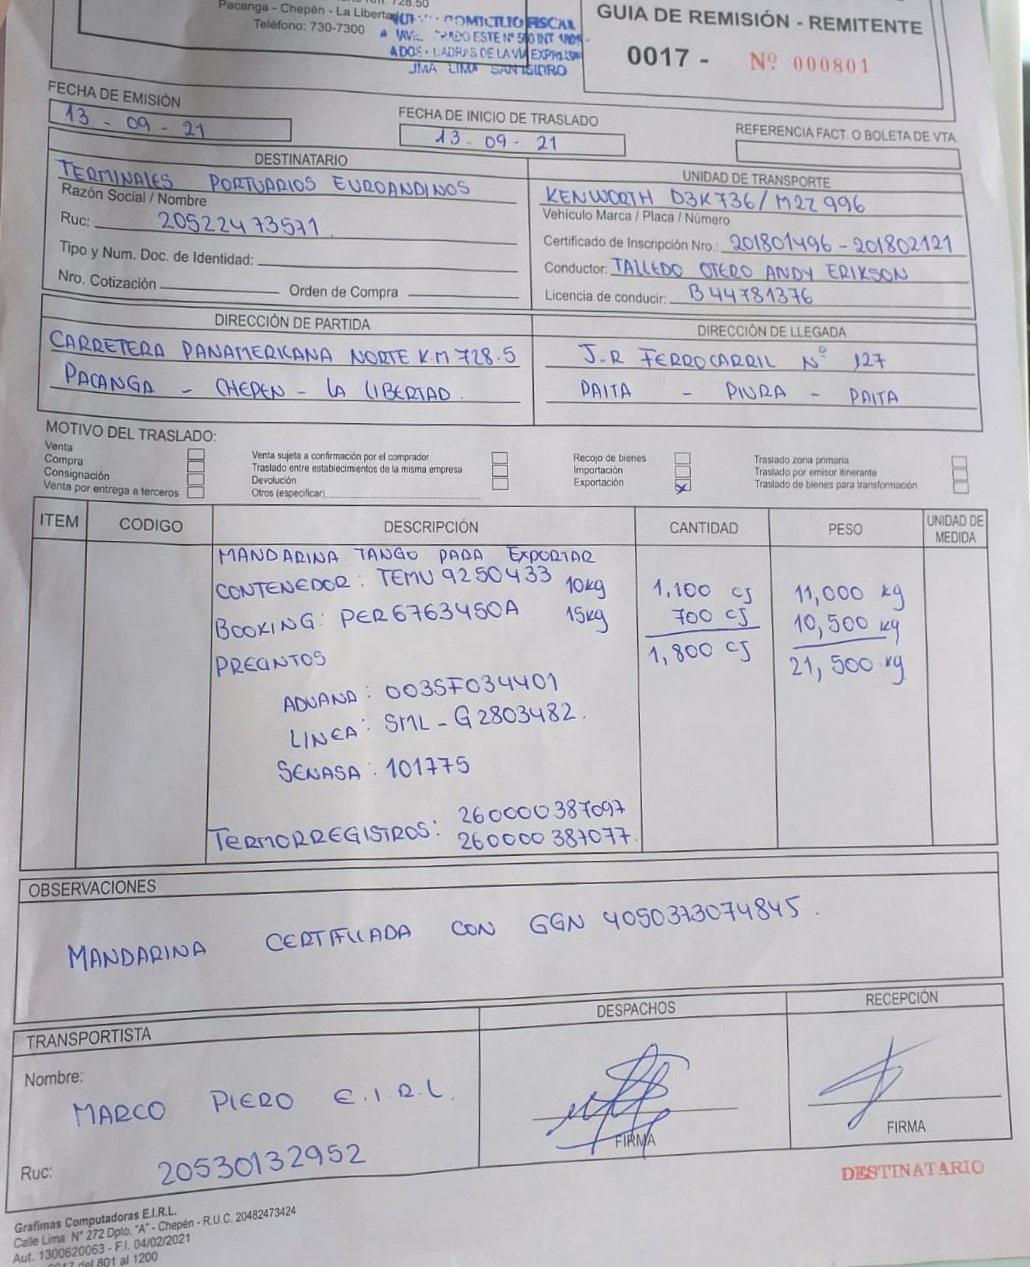 Pacanga - Chepén - La Libertad
Teléfono: 730-7300
DOMICILIO FISCAL
LIMA LIMA SAN ISIDRO
GUIA DE REMISIÓN - REMITENTE
0017 - Nº 000801
FECHA DE EMISIÓN
13 - 09 - 21
FECHA DE INICIO DE TRASLADO
13 - 09 - 21
REFERENCIA FACT. O BOLETA DE VTA.
DESTINATARIO
TERMINALES PORTUARIOS EUROANDINOS
Razón Social / Nombre
Ruc: 20522473571
Tipo y Num. Doc. de Identidad:
Nro. Cotización Orden de Compra
UNIDAD DE TRANSPORTE
KENWORTH D3K736/M2Z996
Vehículo Marca / Placa / Número
Certificado de Inscripción Nro.: 201801496 - 201802121
Conductor: TALLEDO OTERO ANDY ERIKSON
Licencia de conducir: B44781376
DIRECCIÓN DE PARTIDA
CARRETERA PANAMERICANA NORTE K.M 728.5
PACANGA - CHEPEN - LA LIBERTAD.
DIRECCIÓN DE LLEGADA
J.R FERROCARRIL Nº 127
PAITA - PIURA - PAITA
MOTIVO DEL TRASLADO:
Venta
Compra
Consignación
Venta por entrega a terceros
Venta sujeta a confirmación por el comprador
Traslado entre establecimientos de la misma empresa
Devolución
Otros (especificar)
Recojo de bienes
Importación
Exportación X
Traslado zona primaria
Traslado por emisor itinerante
Traslado de bienes para transformación
ITEM CODIGO DESCRIPCIÓN CANTIDAD PESO UNIDAD DE MEDIDA
MANDARINA TANGO PARA EXPORTAR
CONTENEDOR: TEMU 9250433 10kg 1,100 cj 11,000 kg
BOOKING: PER6763450A 15kg 700 cj 10,500 kg
PRECINTOS 1,800 cj 21,500 kg
ADUANA: 003SF034401
LINEA: SML - G2803482.
SENASA: 101775
TERMORREGISTROS: 260000387097
260000387077.
OBSERVACIONES
MANDARINA CERTIFICADA CON GGN 4050373074845.
TRANSPORTISTA
Nombre:
MARCO PIERO E.I.R.L.
Ruc: 20530132952
DESPACHOS
FIRMA
RECEPCIÓN
FIRMA
DESTINATARIO
Grafimas Computadoras E.I.R.L.
Calle Lima Nº 272 Dpto. "A" - Chepén - R.U.C. 20482473424
Aut. 1300620063 - F.I. 04/02/2021
0017 del 801 al 1200